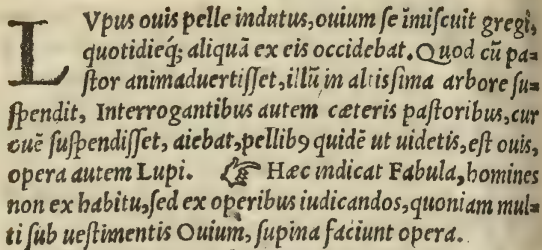 LVpus ouis pelle indutus, ouium ſe ĩmiſcuit gregi,
quotidieq́; aliquã ex eis occidebat. Quod cũ pa=
ſtor animaduertiſſet, illũ in altiſsima arbore ſu=
ſpendit, Interrogantibus autem cæteris paſtoribus, cur
ouẽ ſuſpendiſſet, aiebat, pellibꝰ quidẽ ut uidetis, eſt ouis,
opera autem Lupi. ☞ Hæc indicat Fabula, homines
non ex habitu, ſed ex operibus iudicandos, quoniam mul=
ti ſub ueſtimentis Ouium, ſupina faciunt opera.